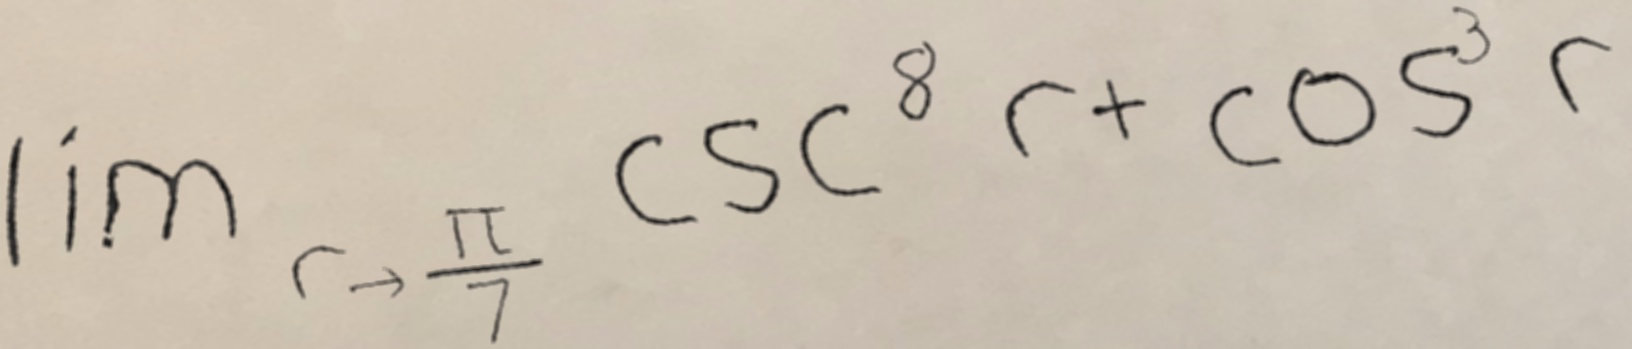 lim_{r→\frac{π}{7}} csc^8 r + cos^3 r